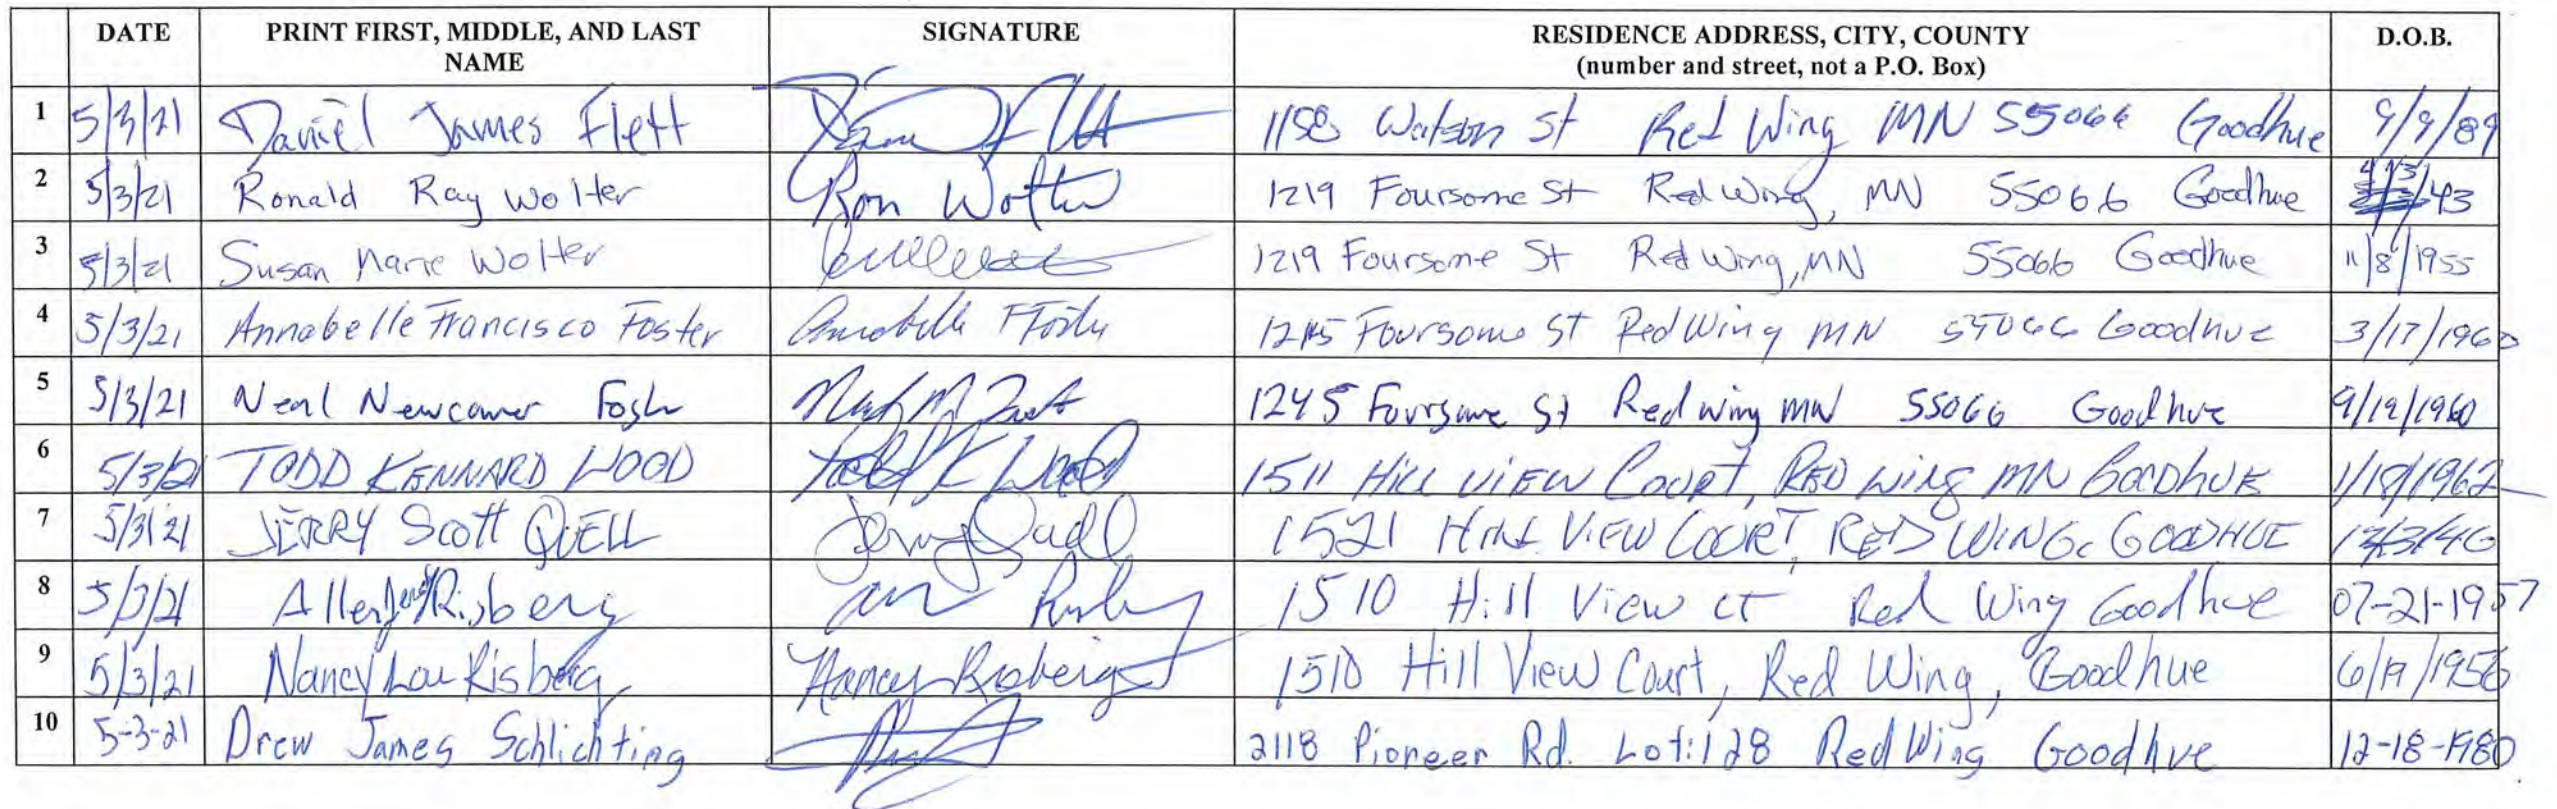 DATE PRINT FIRST, MIDDLE, AND LAST NAME SIGNATURE RESIDENCE ADDRESS, CITY, COUNTY (number and street, not a P.O. Box) D.O.B.
1 5/3/21 Daniel James Flett 1158 Watson St Red Wing MN 55066 Goodhue 9/9/89
2 5/3/21 Ronald Ray Wolter Ron Wolter 1219 Foursome St Red Wing, MN 55066 Goodhue /43
3 5/3/21 Susan Marie Wolter 1219 Foursome St Red Wing, MN 55066 Goodhue 11/8/1955
4 5/3/21 Annabelle Francisco Foster Annabelle F Foster Foursome ST Red Wing MN 55066 Goodhue 3/17/1960
5 5/3/21 Neal Newcomer 1245 Foursome St Red wing MN 55066 Goodhue 9/19/1960
6 5/3/21 TODD KENNARD WOOD Todd K Wood 1511 Hill VIEW Court, RED wing MN Goodhue 1/19/1962
7 5/3/21 JERRY Scott QUELL Jerry Quell 1521 VIEW COURT, RED WING, GOODHUE
8 5/3/21 Allen Risberg 1510 Hill View ct Red Wing Goodhue 07-21-1957
9 5/3/21 Nancy Lou Risberg Nancy Risberg 1510 Hill View Court, Red Wing, Goodhue 6/19/1956
10 5-3-21 Drew James Schlichting 2118 Pioneer Rd. Lot:128 Red Wing Goodhue 12-18-1980